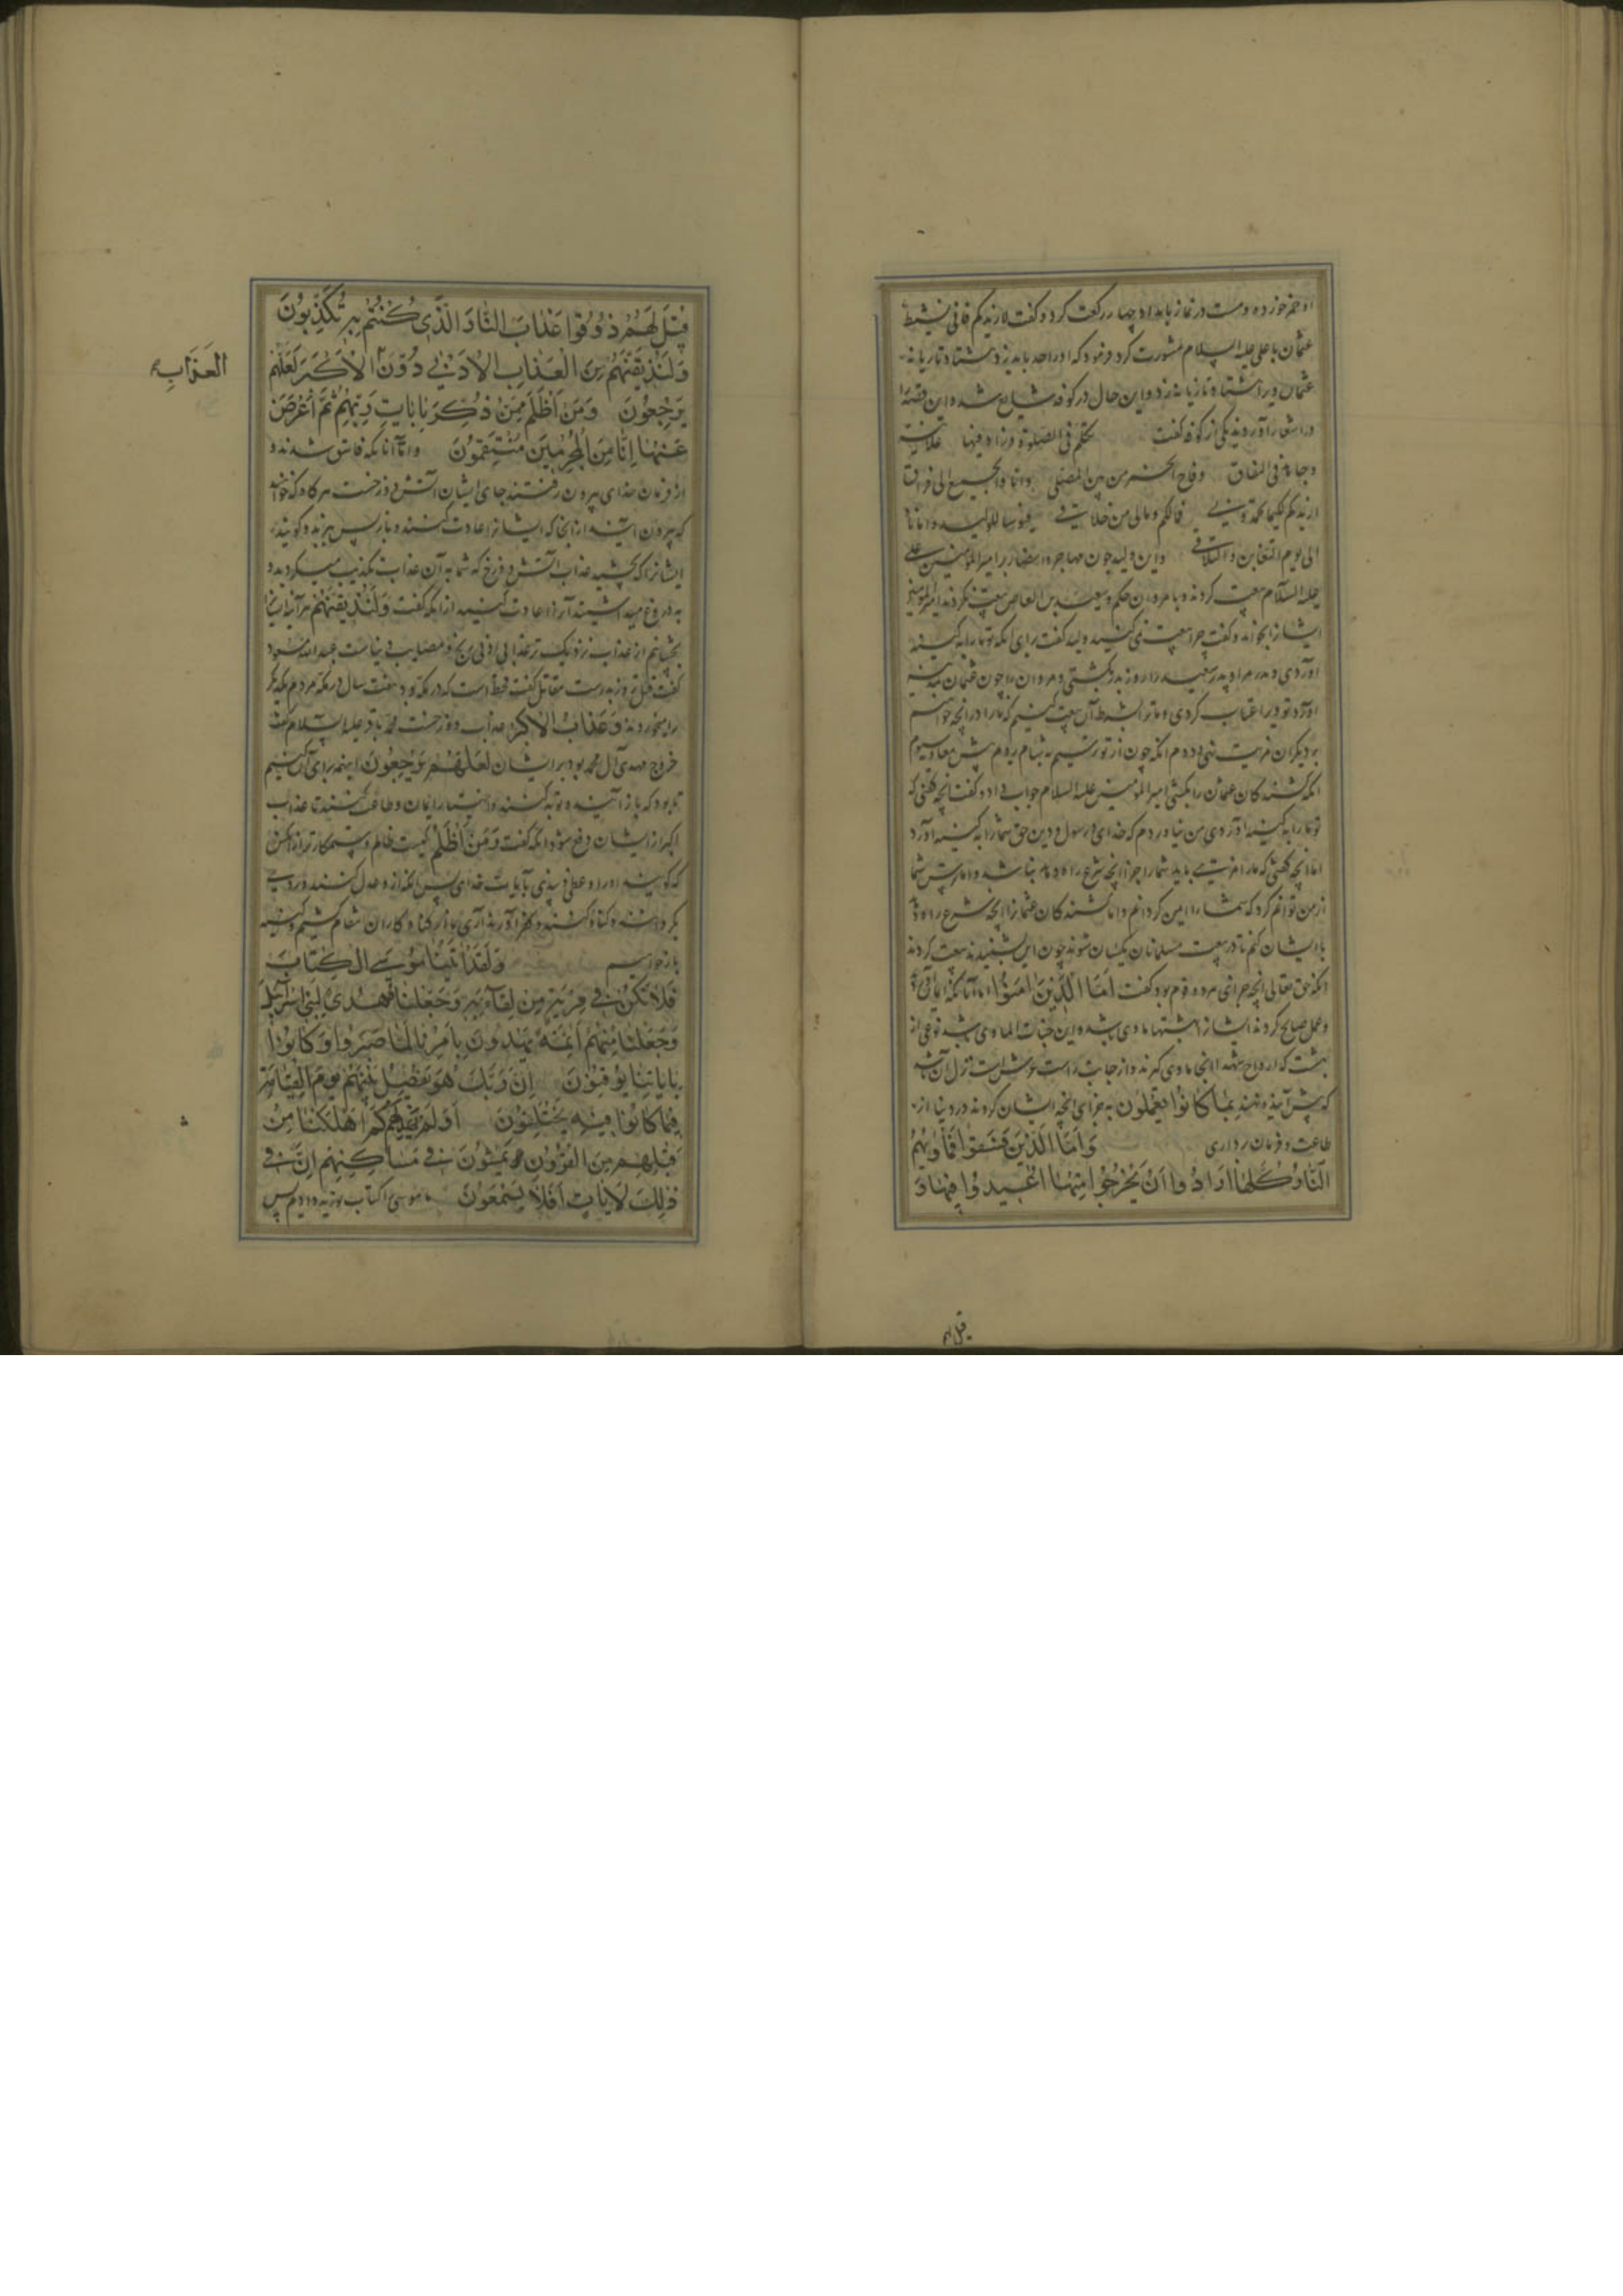 او خمر خورده و مست در نماز بامداد چهار رکعت کرد و کفت لازیدکم فانی نشیط
عثمان با علی علیه السلام مشورت کرد فرمود که او را حد باید زد هشتاد تازیانه
عثمان ویرا هشتاد تازیانه زد و این حال در کوفه شایع شد و این قصه را
در اشعار آوردند یکی از کوفه کفت تکلم فی الصلوة وزاد فیها علانیة
وجاهر فی النفاق وفاح الخمر من المصلی ونادا والجمیع الی فراق
ازیدکم فمالکم ومالی من خلاق
الی یوم التغابن والتلاق و این ولید چون مهاجر و انصار بر امیرالمؤمنین علی
علیه السلام بیعت کردند و با مروان حکم و سعید بن العاص بیعت نکردند امیرالمؤمنین
ایشانرا بخواند و کفت چرا بیعت نمی کنید ولید کفت برای آنکه تو ما را به کینه
آوردی و پدر مرا و پدر سعید را روز بدر بکشتی و مروان را چون عثمان بمدینه
آورد تو ویرا عتاب کردی و ما ترا بشرط آن بیعت کنیم که ما را در آنچه خواهیم
بر دیکران مزیت نهی دوم آنکه چون از تو ترسیم به شام رویم پیش معاویه سیوم
آنکه کشندکان عثمان را بکشی امیرالمؤمنین علیه السلام جواب داد و کفت آنچه کفتی که
تو ما را به کینه آوردی من نیاوردم که خدای و رسول و دین حق شما را به کینه آورد
اما آنچه کفتی که ما را مزیتی باید شما را جز آنچه شرع راه دهد نباشد و اما ترس شما
از من توانم کرد که شما را ایمن کردانم و اما کشندکان عثمانرا آنچه شرع راه دهد
با ایشان کنم تا در بیعت مسلمانان یکسان شوند چون این بشنیدند بیعت کردند
آنکه حق تعالی آنچه جزای هر دو قوم بود کفت اَمَّا الَّذِینَ اٰمَنُوا اما آنانکه ایمان آوردند
و عمل صالح کردند ایشانرا بهشتها ماوی باشد و این جنات الماوی باشد نوعی از
بهشت که ارواح شهدا آنجا ماوی کیرند و از جانب راست عرش است نزل آن باشد
که پیش آینده نهند بِمَا کَانُوا یَعْمَلُونَ به جزای آنچه ایشان کردند در دنیا از
طاعت و فرمان برداری وَاَمَّا الَّذِینَ فَسَقُوا فَمَأْوٰیهُمُ
النَّارُ کُلَّمَا اَرَادُوا اَنْ یَخْرُجُوا مِنْهَا اُعِیدُوا فِیهَا وَ
قیل لهم
قِیلَ لَهُمْ ذُوقُوا عَذَابَ النَّارِ الَّذِی کُنْتُمْ بِهِ تُکَذِّبُونَ
وَلَنُذِیقَنَّهُمْ مِنَ الْعَذَابِ الْاَدْنٰی دُونَ الْاَکْبَرِ لَعَلَّهُمْ
العَذَابِ
یَرْجِعُونَ وَمَنْ اَظْلَمُ مِمَّنْ ذُکِّرَ بِاٰیَاتِ رَبِّهِ ثُمَّ اَعْرَضَ
عَنْهَا اِنَّا مِنَ الْمُجْرِمِینَ مُنْتَقِمُونَ و اما آنانکه فاسق شدند و
از فرمان خدای بیرون رفتند جای ایشان آتش دوزخست هرکاه که خواهند
که بیرون آیند از آنجا که ایشانرا اعادت کنند و باز پس برند و کویند
ایشانرا که بچشید عذاب آتش دوزخ که شما به آن عذاب تکذیب میکردید و
به دروغ میداشتید آنرا اعادت کنید آنکه کفت وَلَنُذِیقَنَّهُمْ هر آینه ایشانرا
بچشانیم از عذاب نزدیک تر عذابی ادنی رنج و مصایب دنیاست عبدالله مسعود
کفت قتل روز بدرست مقاتل کفت قحط است که در مکه بود هفت سال در مکه مردم یکدیکر
را میخوردند وَ عَذَابُ الْاَکْبَرِ عذاب دوزخست محمد باقر علیه السلام کفت
خروج مهدی آل محمد بود بر ایشان لَعَلَّهُمْ یَرْجِعُونَ اینهمه برای آن کنیم
تا بود که باز آیند و توبه کنند و اختیار ایمان و طاعت کنند تا عذاب
اکبر از ایشان دفع شود آنکه کفت وَمَنْ اَظْلَمُ کیست ظالم و ستمکارتر از آنکس
که کویند او را وعظی و پندی بآیات خدای پس آنکه از و عدل کنند و روی
بکردانند و کناه کنند و کفر آورند آری ما از کناهکاران انتقام کشیم و کینه
بازخواهیم وَلَقَدْ اٰتَیْنَا مُوسَی الْکِتَابَ
فَلَا تَکُنْ فِی مِرْیَةٍ مِنْ لِقَائِهِ وَجَعَلْنَاهُ هُدًی لِبَنِی اِسْرَائِیلَ
وَجَعَلْنَا مِنْهُمْ اَئِمَّةً یَهْدُونَ بِاَمْرِنَا لَمَّا صَبَرُوا وَکَانُوا
بِاٰیَاتِنَا یُوقِنُونَ اِنَّ رَبَّکَ هُوَ یَفْصِلُ بَیْنَهُمْ یَوْمَ الْقِیَامَةِ
فِیمَا کَانُوا فِیهِ یَخْتَلِفُونَ اَوَلَمْ یَهْدِ لَهُمْ کَمْ اَهْلَکْنَا مِنْ
قَبْلِهِمْ مِنَ الْقُرُونِ یَمْشُونَ فِی مَسَاکِنِهِمْ اِنَّ فِی
ذٰلِکَ لَاٰیَاتٍ اَفَلَا یَسْمَعُونَ ما موسی را کتاب توریه دادیم پس